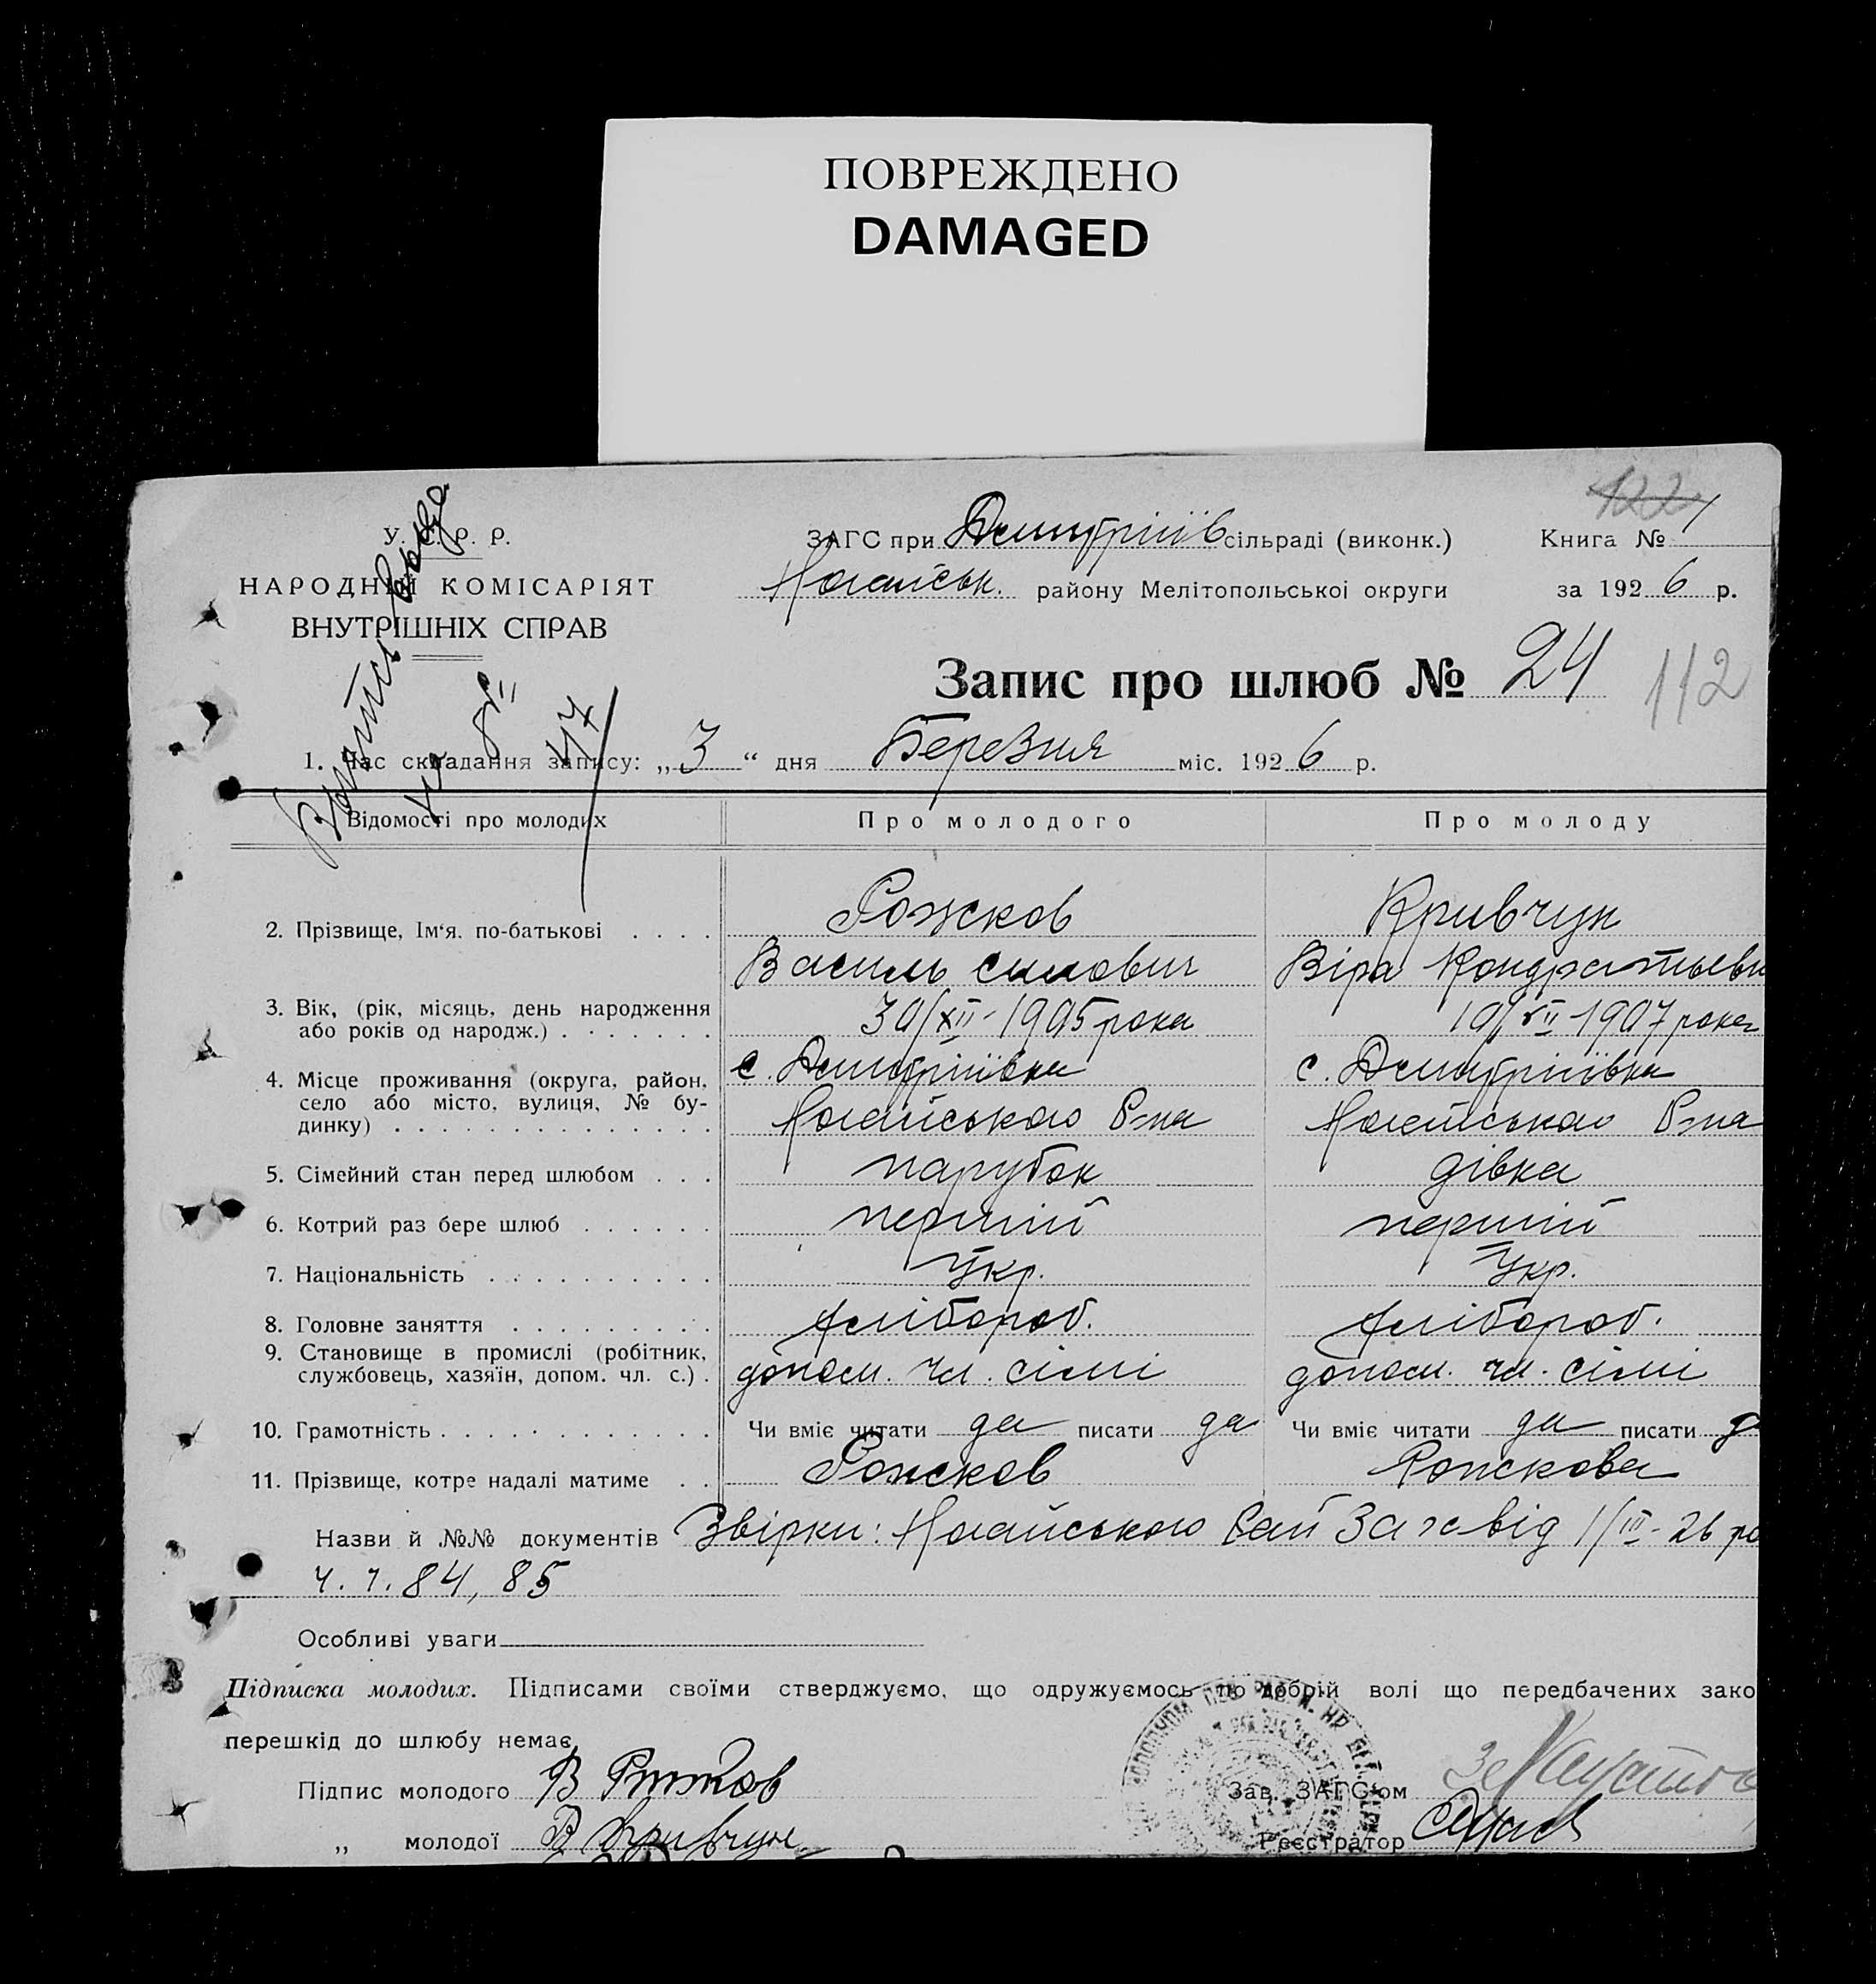 ПОВРЕЖДЕНО
DAMAGED
122
У. С. Р. Р.
НАРОДНІЙ КОМІСАРІЯТ
ВНУТРІШНІХ СПРАВ
ЗАГС при Дмитріїв сільраді (виконк.)
Ногайськ. району Мелітопольської округи
Книга № 1
за 1926 р.
Запис про шлюб № 24
112
47
1. Час складання запису: „3“ дня Березня міс. 1926 р.
Відомості про молодих
Про молодого
Про молоду
2. Прізвище, Ім‘я, по-батькові . . . .
Рожков
Кривчун
Василь Силович
Віра Кондратьевн
3. Вік, (рік, місяць, день народження
або років од народж.) . . . . . . .
30/XII-1905 рока
10/VII-1907 рока
4. Місце проживання (округа, район,
село або місто, вулиця, № бу-
динку) . . . . . . . . . . . . . .
с. Дмитріївка
с. Дмитріївка
Ногайського Р-на
Ногайського Р-на
5. Сімейний стан перед шлюбом . . .
парубок
дівка
6. Котрий раз бере шлюб . . . . . .
перший
перший
7. Національність . . . . . . . . . .
Укр.
Укр.
8. Головне заняття . . . . . . . . .
хлібороб.
хлібороб.
9. Становище в промислі (робітник,
службовець, хазяїн, допом. чл. с.) .
допом. чл. сімі
допом. чл. сімі
10. Грамотність . . . . . . . . . . . .
Чи вміє читати да писати да
Чи вміє читати да писати д
11. Прізвище, котре надалі матиме . .
Рожков
Рожкова
Назви й №№ документів Звірки: Ногайського Рай Загс від 1/III-26 ро
ч. ч. 84, 85
Особливі уваги
Підписка молодих. Підписами своїми стверджуємо, що одружуємось по добрій волі що передбачених зако
перешкід до шлюбу немає
Підпис молодого В Рожков
Зав. ЗАГС‘ом
„ молодої В Кривчун
Реєстратор